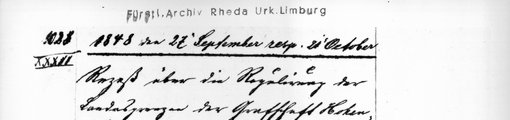 Fürstl. Archiv Rheda Urk. Limburg
1028 1848 den 27 September resp. 21 October
XXXIII
Rezeß über die Regulirung der
Landesgrenzen der Grafschaft Hohen,